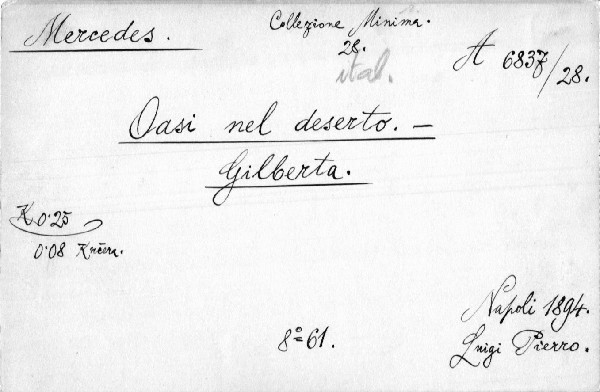 Mercedes.
Collezione Minima.
28.
ital.
A 6837/28.
Oasi nel deserto. —
Gilberta.
K 0·25
0·08 Kučera.
Napoli 1894.
Luigi Pierro.
8° 61.